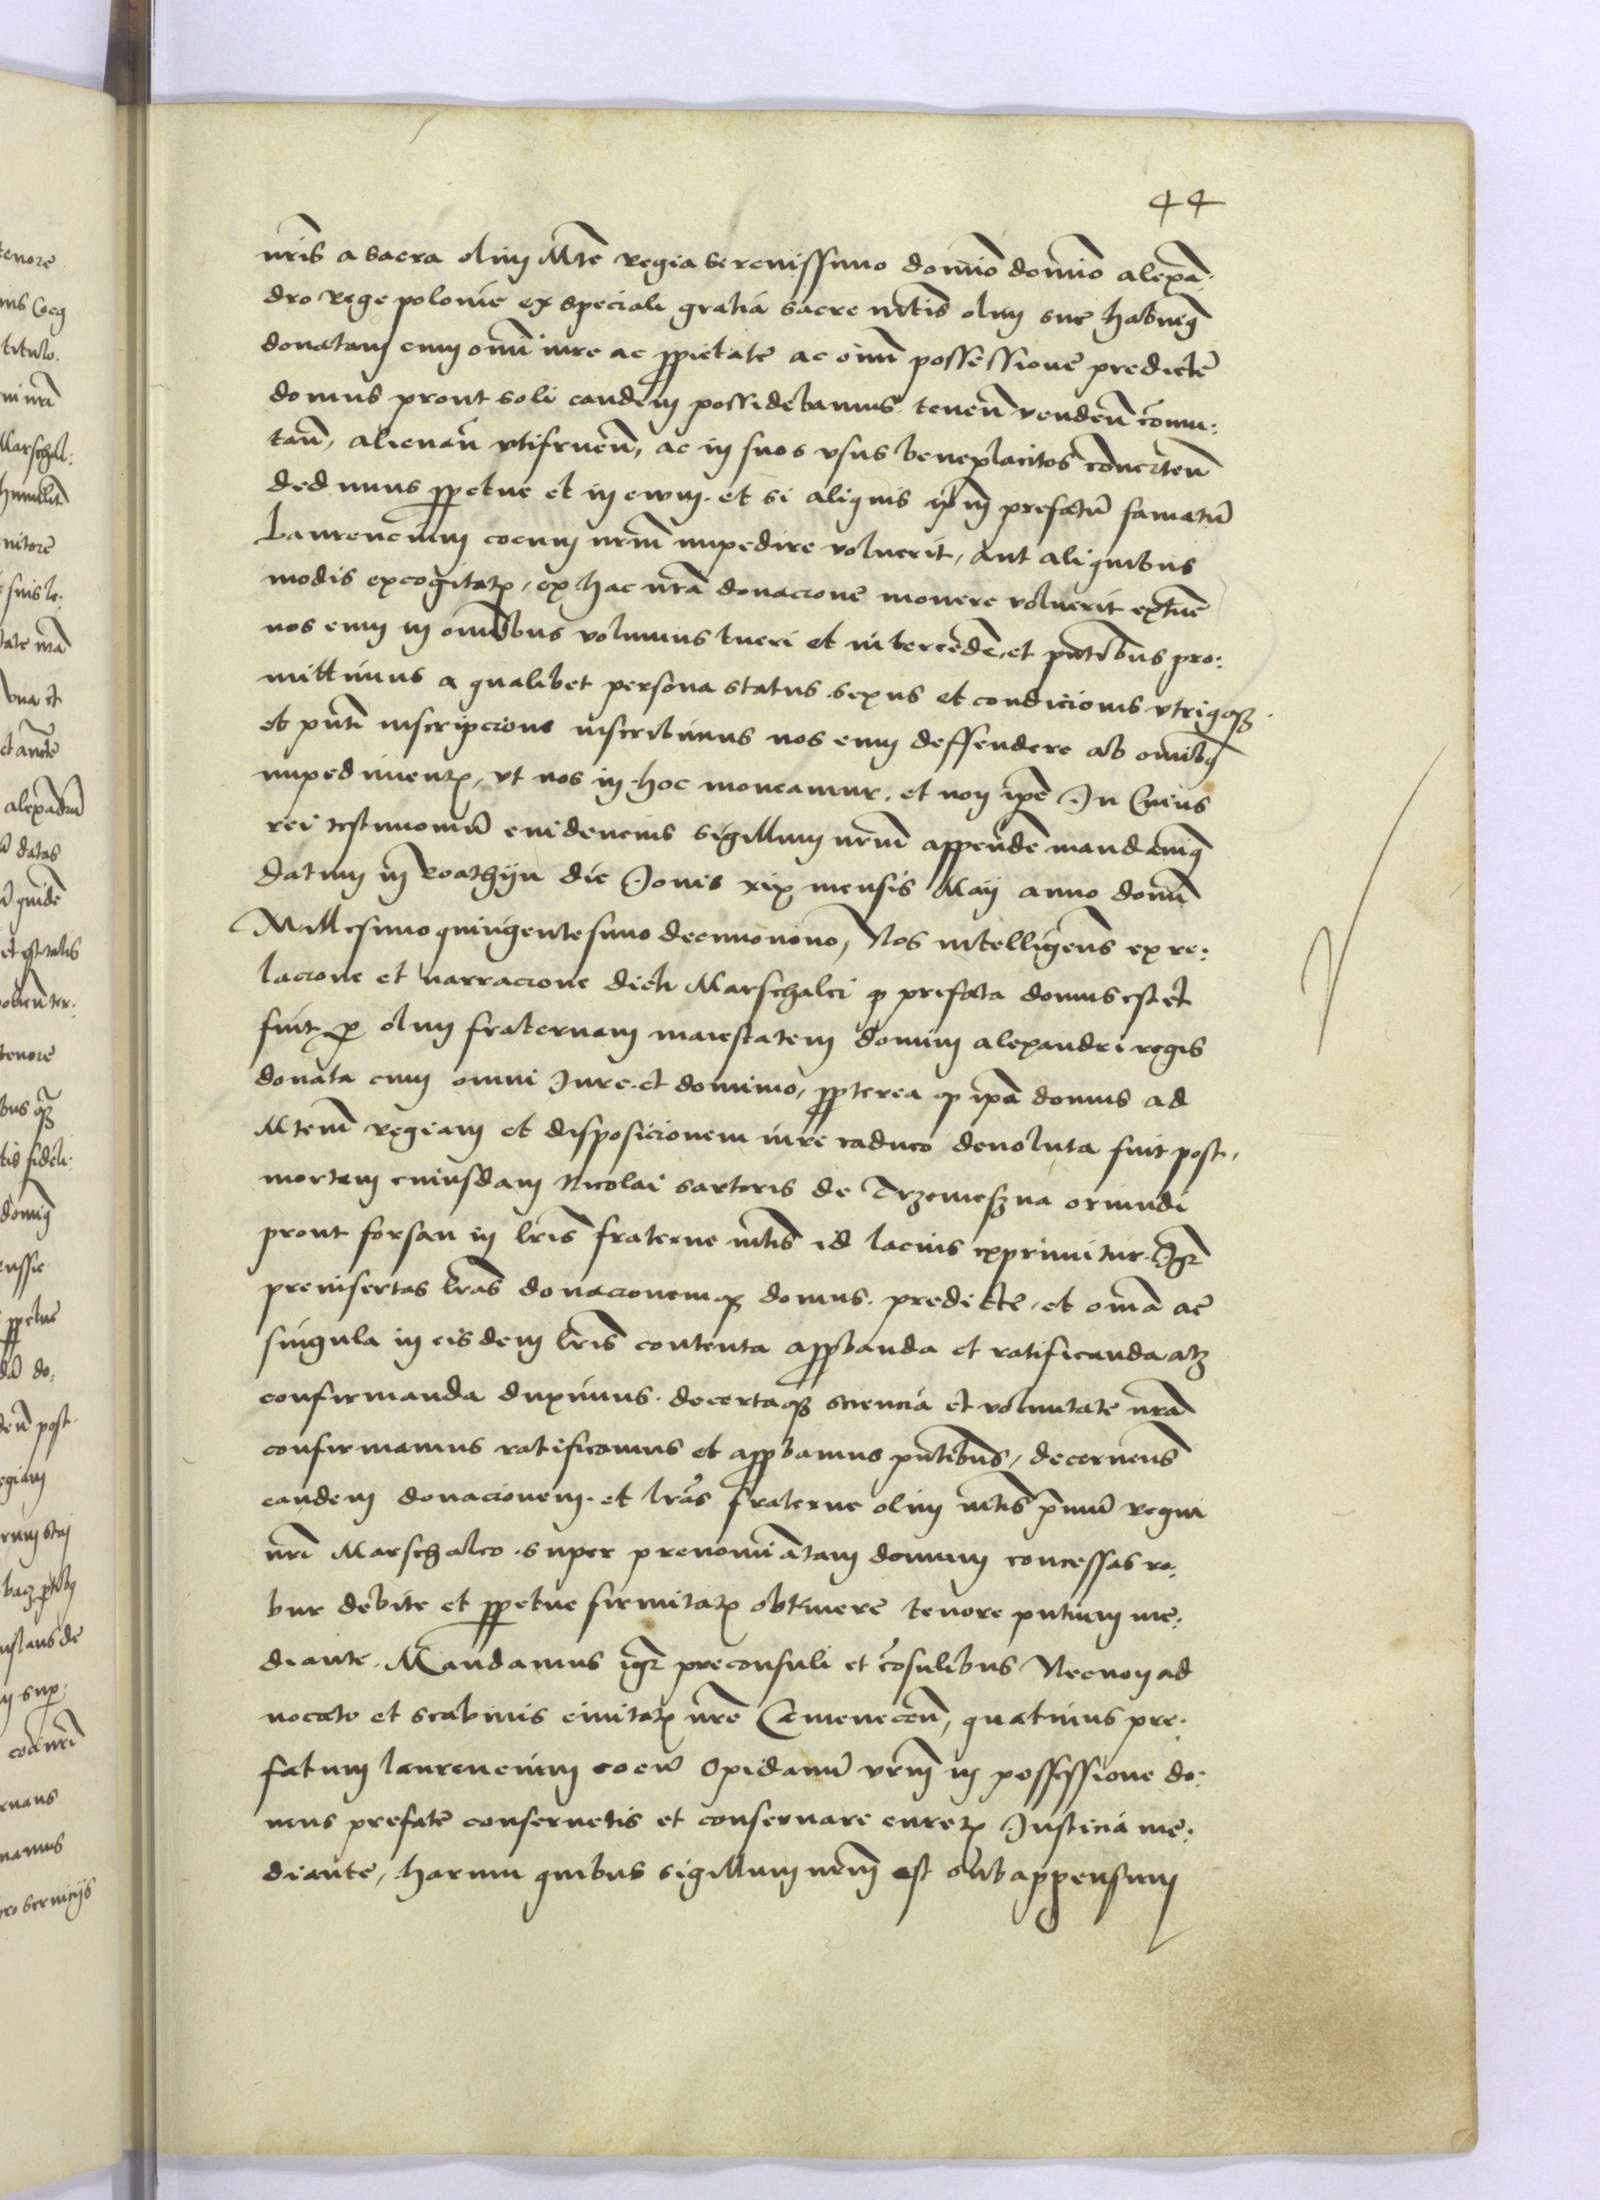 44
nr̃is a sacra olim Mte regia serenissimo domĩo domĩo alexã:
dro rege polonie ex speciali gratia sacre mtis olim sue habuimꝰ
donatam cum omni iure ac ꝓprietate ac omni possessione predicte
domus prout soli eandem possidebamus teneñ vendeñ com̃u:
tañ, alienañ utifrueñ, ac in suos usus beneplacitos conerteñ
dedimus ꝑpetue et in ewm. et si aliquis ip̃m prefatũ famatũ
Laurencium cocum nrm̃ impedire voluerit, aut aliquibus
modis excogitatis, ex hac nrã donacione monere voluerit
nos eum in omĩbus volumus tueri et intercedẽ, et pñtibus pro:
mittimus a qualibet persona status sexus et condicionis utriusqꝫ
et pñti inscripcione inscribimus nos eum deffendere ab omnibꝰ
impedimentis, ut nos in hoc moneamur, et non ip̃e In Cuius
rei testimoniũ euidencius sigillum nrm̃ appendẽ mandauimꝰ
Datum in die Jouis xix mensis Maij anno domĩ
Millesimo quingentesimo decimonono, Nos intelligens̃ ex re:
lacione et narracione dicti Marschalci ꝙ prefata domus est et
fuit ꝑ olim fraternam maiestatem domini alexandri regis
donata cum omni Jure et dominio, ꝓpterea ꝙ ip̃a domus ad
Mtem̃ regiam et disposicionem iure caduco deuoluta fuit post
mortem cuiusdam Nicolai sartoris de Trzemeszna oriundi
prout forsan in lris̃ fraterne mtis̃ id lacius exprimitur. Igr̃
preinsertas lras̃ donacionemqꝫ domus predicte, et omĩa ac
singula in eisdem lris̃ contenta approbanda et ratificanda atqꝫ
confirmanda duximus. de certaqꝫ sciencia et voluntate nrã
confirmamus ratificamus et approbamus pñtibus, decernens̃
eandem donacionem et lras̃ fraterne olim mtis̃ regni
nri Marschalco super prenominatam domum concessas ro:
bur debite et ꝑpetue firmitatis obtinere tenore pñtium me:
diante. Mandamus igr̃ preconsuli et cõsulibus Necnon ad
uocato et scabinis ciuitatis nrẽ Cameneceñ, quatinus pre:
fatum laurencium cocũ Opidanũ vrm̃ in possessione do:
mus prefate conseruetis et conseruare curetis Justicia me:
diante, harum quibus sigillum nrm̃ est subappensum